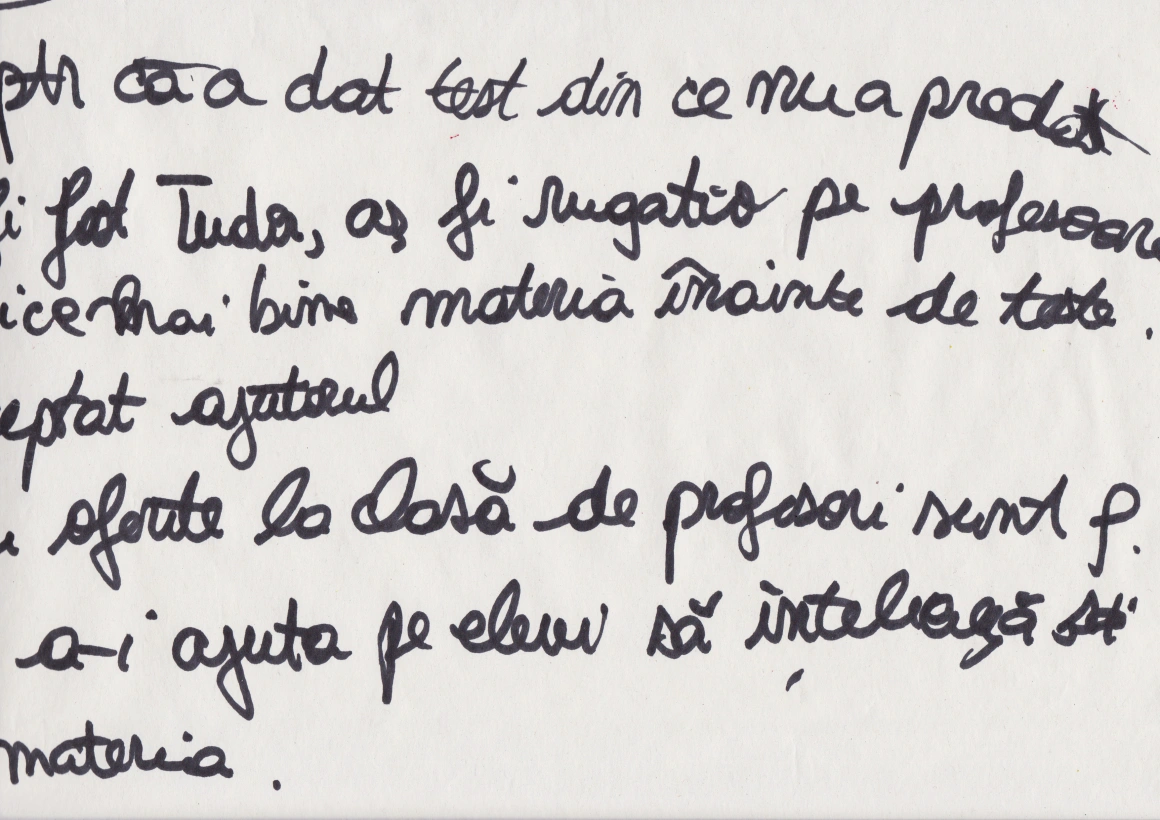 ptr că a dat test din ce nu a predat
fi fost Tudor, aș fi rugat-o pe profesoare
ice mai bine materia înainte de teste.
eptat ajutorul
oferite la clasă de profesori sunt f.
a-i ajuta pe elevi să înțeleagă și
materia.